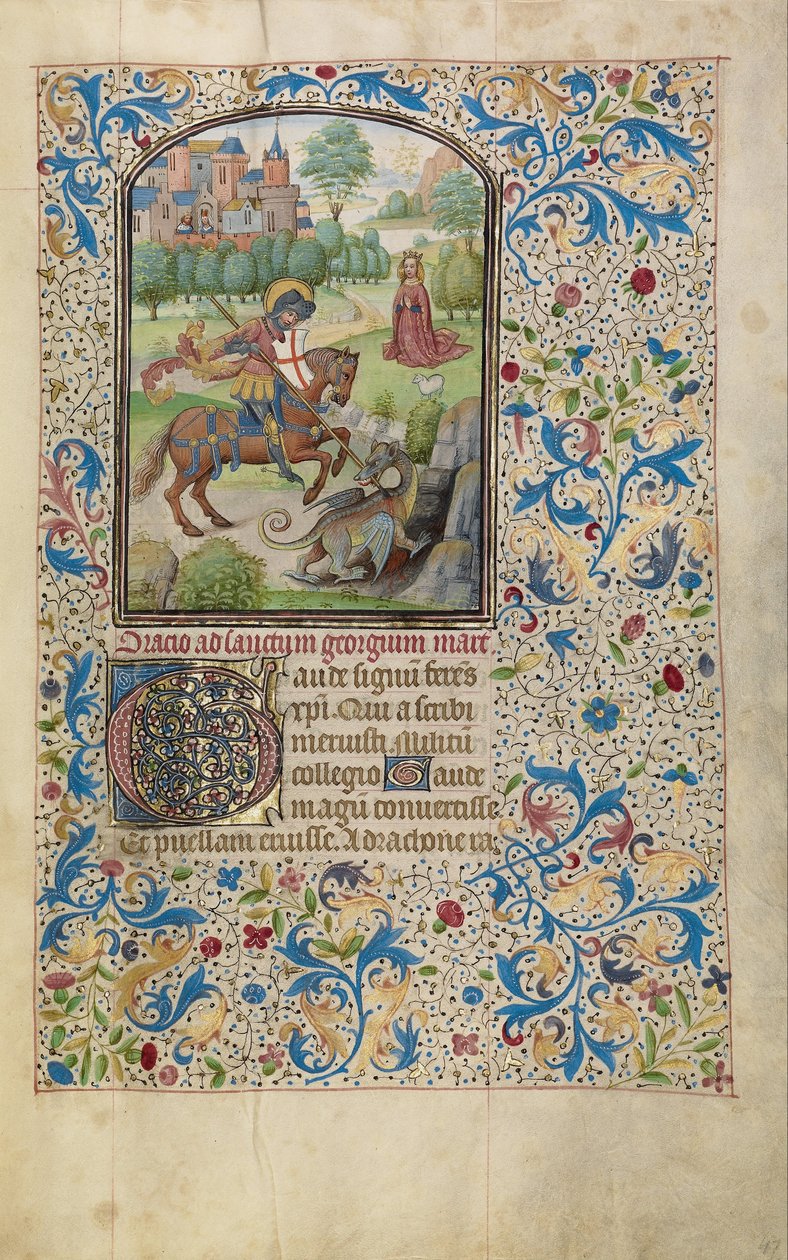 Oracio ad sanctum georgium mart.
Gaude signū ferēs
xpī. Qui ascribi
meruisti. Militū
collegio Gaude
magū convertisse
Et puellam eruisse. A drachone ra,
47